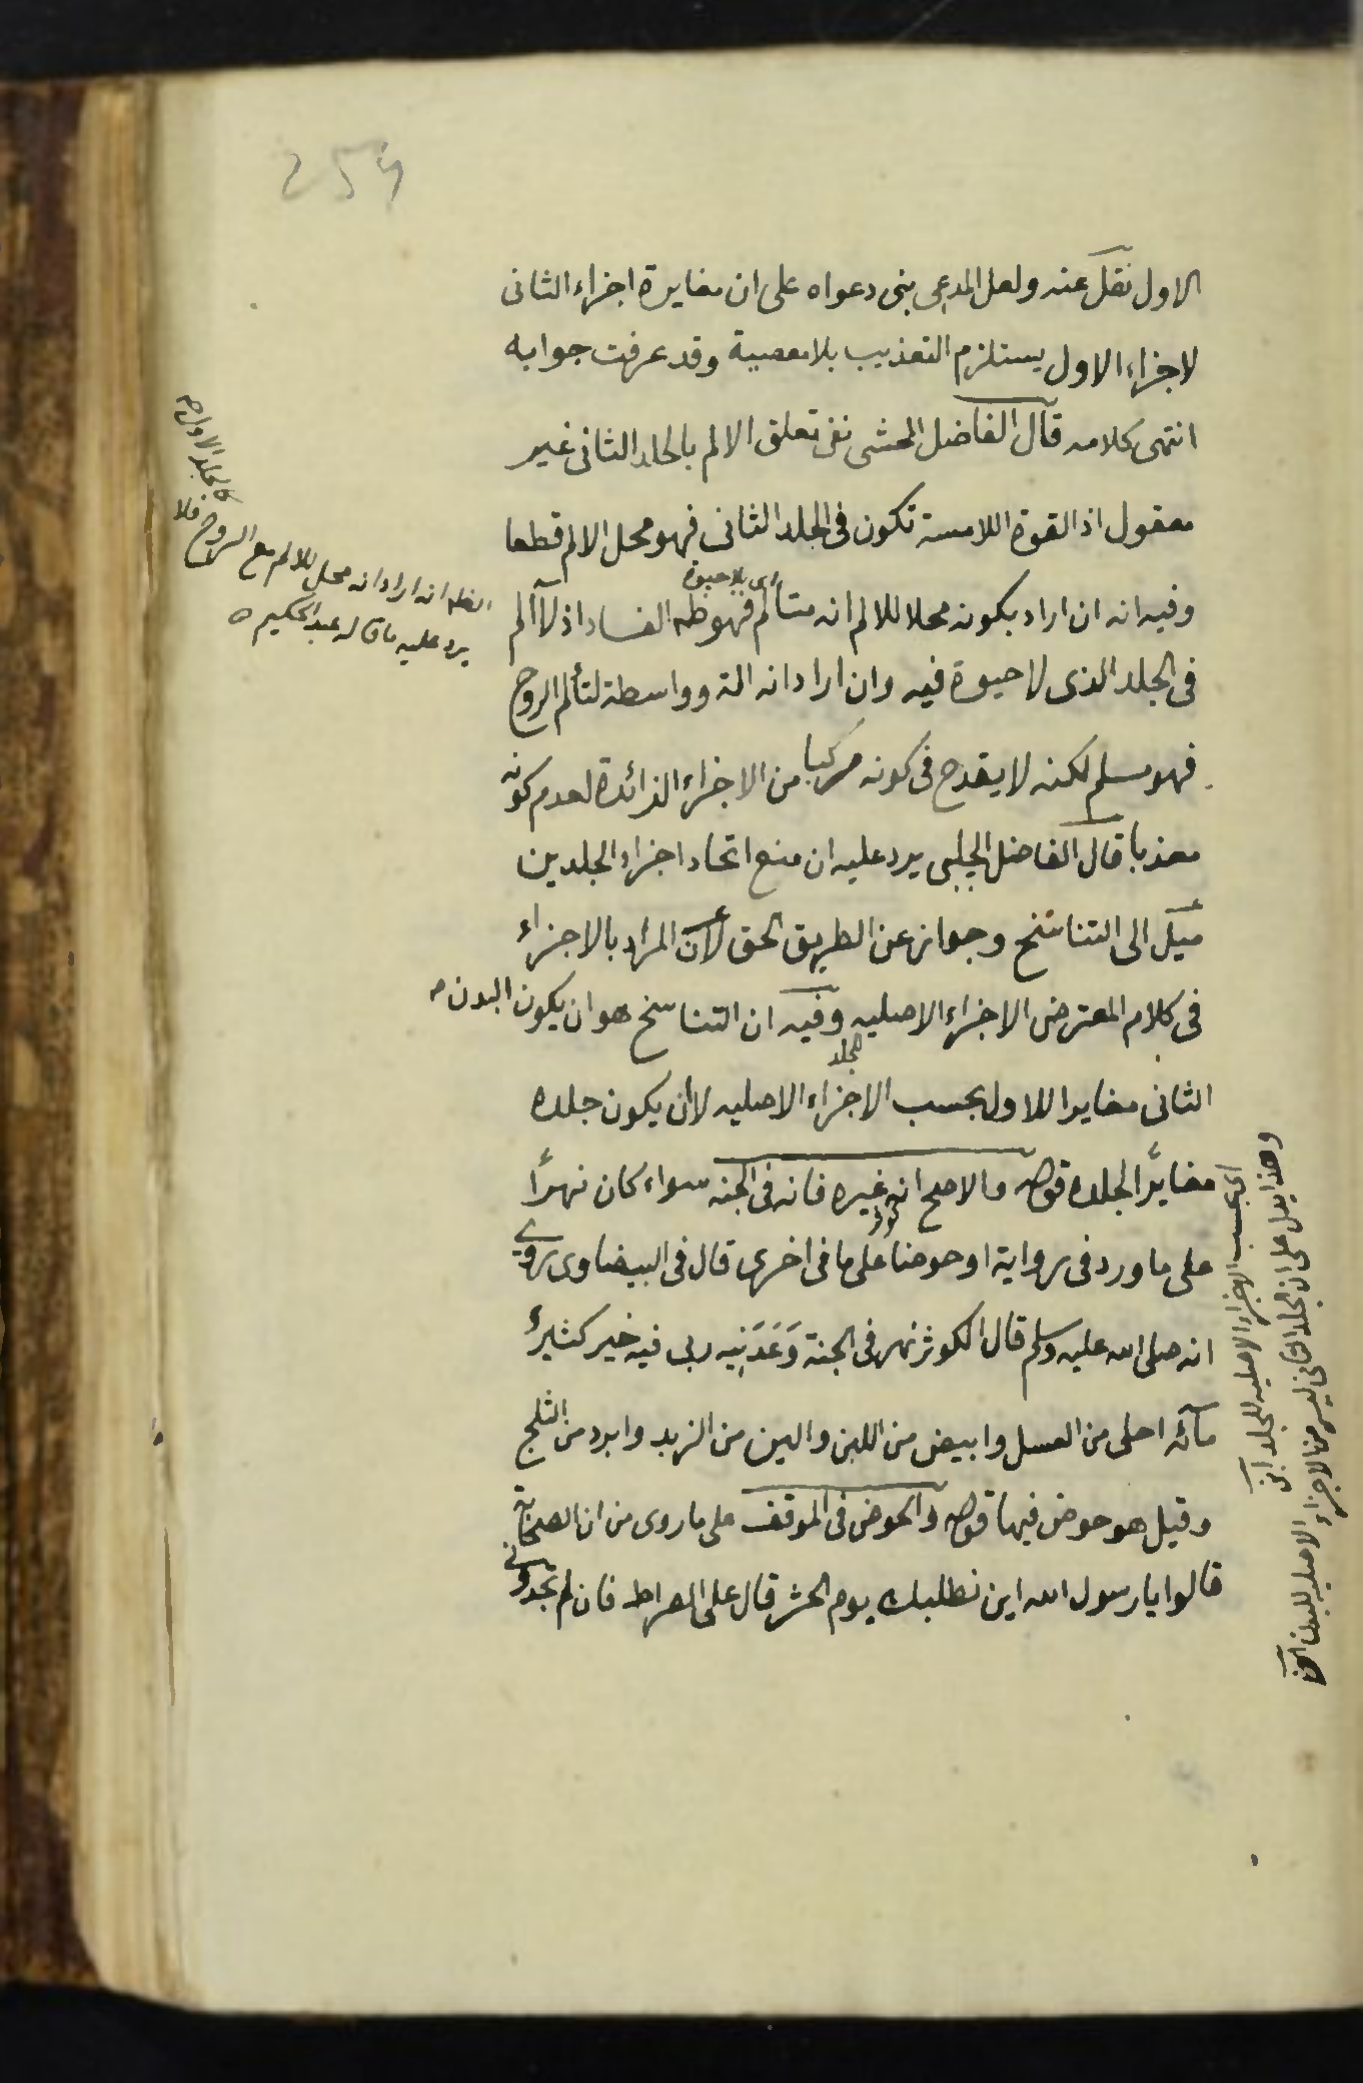 254
الاول نقل عنه ولعل المدعى بنى دعواه على ان مغايرة اجزاء الثانى
لاجزاء الاول يستلزم التعذيب بلا معصية وقد عرفت جوابه
انتهى كلامه قال الفاضل المحشى نفى تعلق الالم بالجلد الثانى غير
معقول اذ القوة اللامسة تكون فى الجلد الثانى فهو محل الالم قطعا
اى بلا حيوة
وفيه انه ان اراد بكونه محلا للالم انه متألم فهو ظه الفساد اذ لا الم
فى الجلد الذى لا حيوة فيه وان اراد انه الة وواسطة لتألم الروح
فهو مسلم لكنه لا يقدح فى كونه مركبا من الاجزاء الزائدة لعدم كونه
معذبا قال الفاضل الچلبى يرد عليه ان منع اتحاد اجزاء الجلدين
ميل الى التناسخ وجواز عن الطريق الحق لأن المراد بالاجزاء
فى كلام المعترض الاجزاء الاصليه وفيه ان التناسخ هو ان يكون البدن
للجلد
الثانى مغايرا للاول بحسب الاجزاء الاصليه لا أن يكون جلده
مغايرًا لجلده قوله والاصح انه غيره فانه فى الجنه سواء كان نهرًا
على ما ورد فى رواية او حوضا على ما فى اخرى قال فى البيضاوى روى
انه صلى الله عليه وسلم قال الكوثر نهر فى الجنة وَعَدَنِيه ربى فيه خير كثير
مآئه احلى من العسل وابيض من اللبن والين من الزبد وابرد من الثلج
وقيل هو حوض فيها قوله والحوض فى الموقف على ما روى من ان الصحابة
قالوا يا رسول الله اين نطلبك يوم الحشر قال على الصراط فان لم تجدونى
كالجلد الاول
الظه انه اراد انه محل للالم مع الروح فلا
يرد عليه ما قاله عبد الحكيم
اى بحسب الاجزاء الاصليه للجلد
وهذا يدل على ان الجلد الثانى ليس من الاجزاء الاصليه للبدن